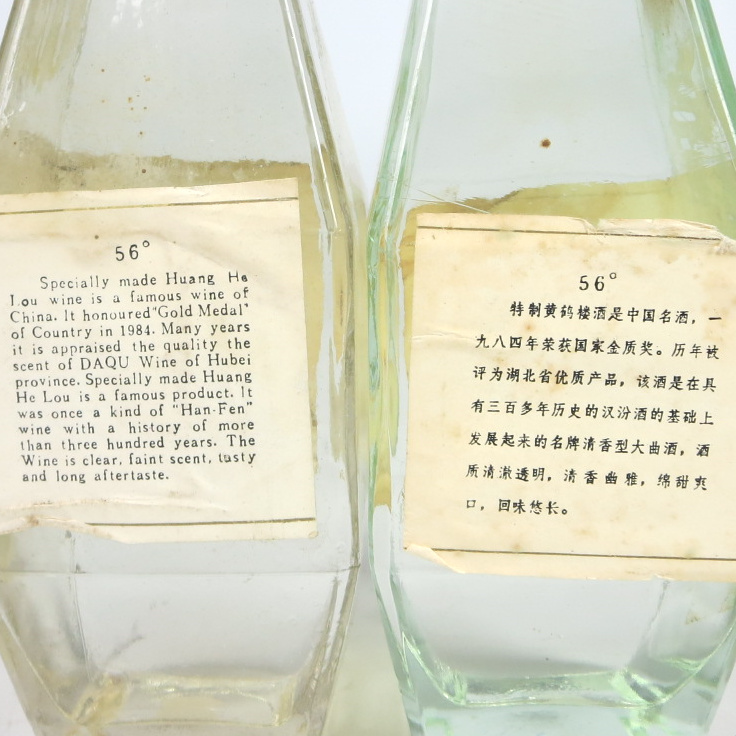 56°
Specially made Huang He
Lou wine is a famous wine of
China. It honoured "Gold Medal"
of Country in 1984. Many years
it is appraised the quality the
scent of DAQU Wine of Hubei
province. Specially made Huang
He Lou is a famous product. It
was once a kind of "Han-Fen"
wine with a history of more
than three hundred years. The
Wine is clear, faint scent, tasty
and long aftertaste.
56°
特制黄鹤楼酒是中国名酒，一
九八四年荣获国家金质奖。历年被
评为湖北省优质产品，该酒是在具
有三百多年历史的汉汾酒的基础上
发展起来的名牌清香型大曲酒，酒
质清澈透明，清香幽雅，绵甜爽
口，回味悠长。